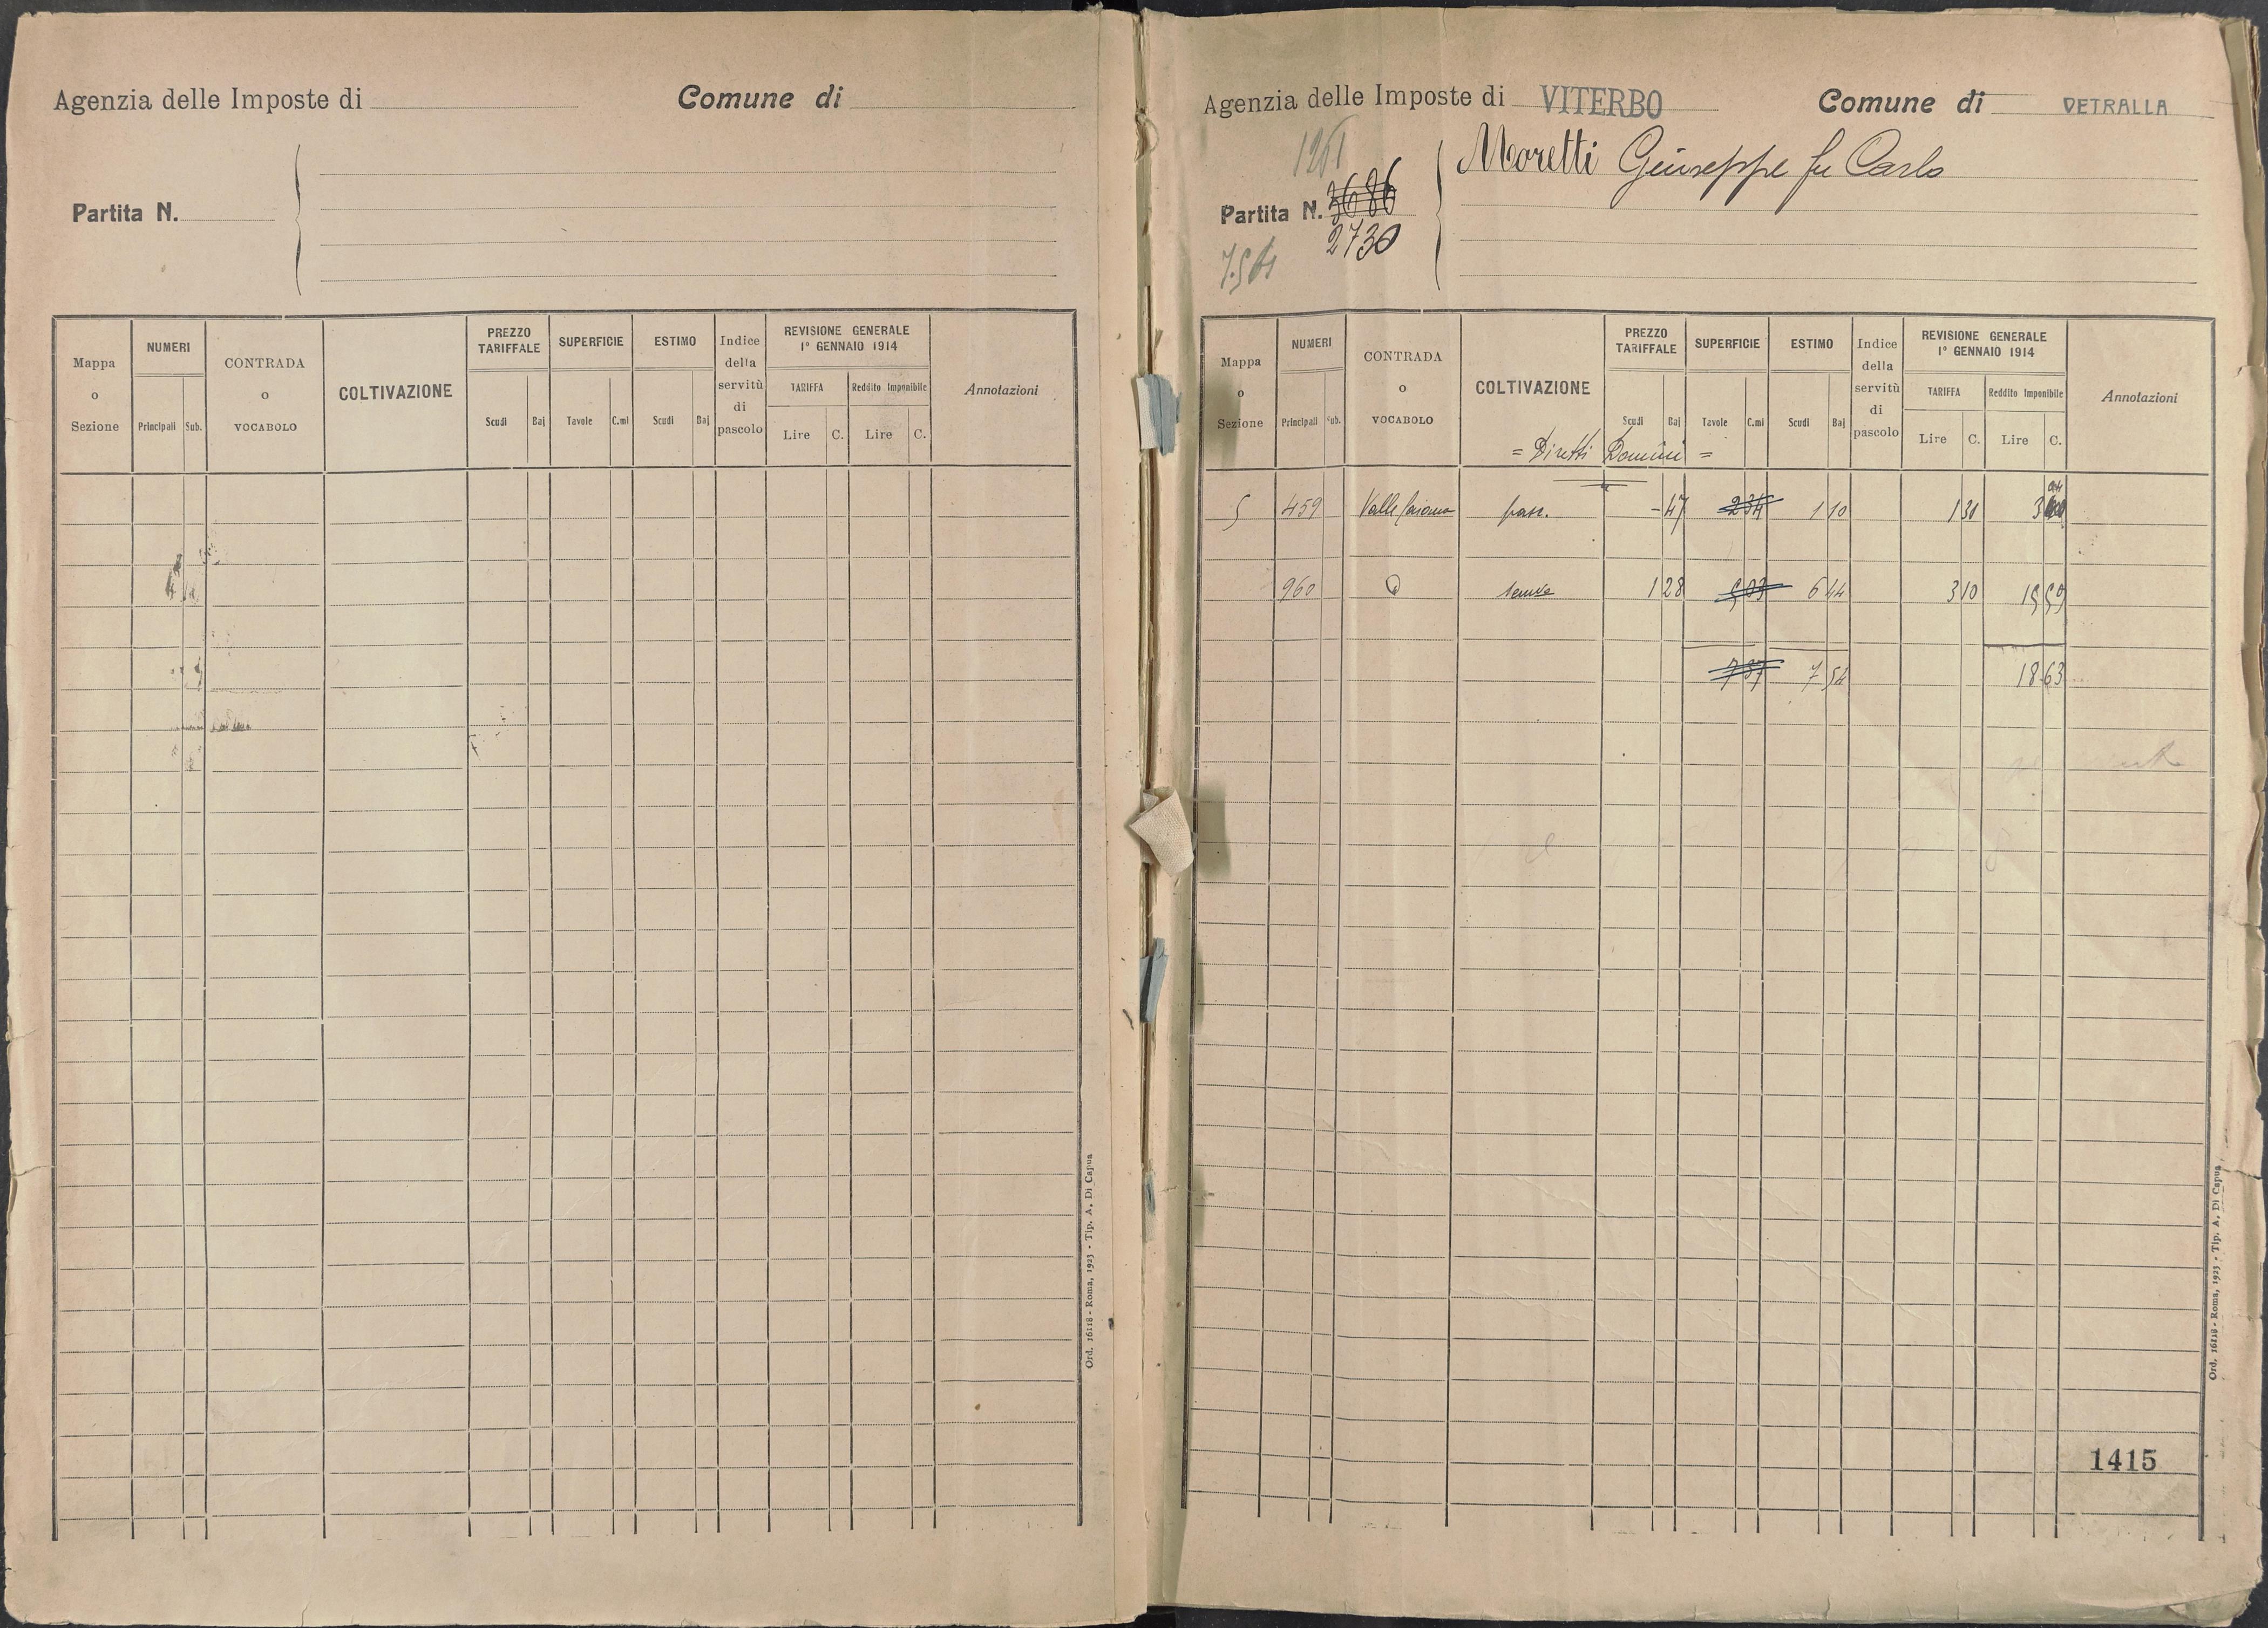 Agenzia delle Imposte di
Comune di
Partita N.
Mappa o Sezione
NUMERI
Principali Sub.
CONTRADA o VOCABOLO
COLTIVAZIONE
PREZZO TARIFFALE
Scudi Baj
SUPERFICIE
Tavole C.mi
ESTIMO
Scudi Baj
Indice della servitù di pascolo
REVISIONE GENERALE
1° GENNAIO 1914
TARIFFA Reddito Imponibile
Lire C. Lire C.
Annotazioni
Ord. 16118 - Roma, 1923 - Tip. A. Di Capua
Agenzia delle Imposte di VITERBO
Comune di VETRALLA
Moretti Giuseppe fu Carlo
Partita N. 3686
2730
Mappa o Sezione
NUMERI
Principali Sub.
CONTRADA o VOCABOLO
COLTIVAZIONE
PREZZO TARIFFALE
Scudi Baj
SUPERFICIE
Tavole C.mi
ESTIMO
Scudi Baj
Indice della servitù di pascolo
REVISIONE GENERALE
1° GENNAIO 1914
TARIFFA Reddito Imponibile
Lire C. Lire C.
Annotazioni
= Diretti Domini =
5 459 Valle pasc. - 47 2 34 1 10 1 30 3 04
960 1 28 5 03 6 44 3 10 15 59
7 37 7 54 18 63
1415
Ord. 16118 - Roma, 1923 - Tip. A. Di Capua